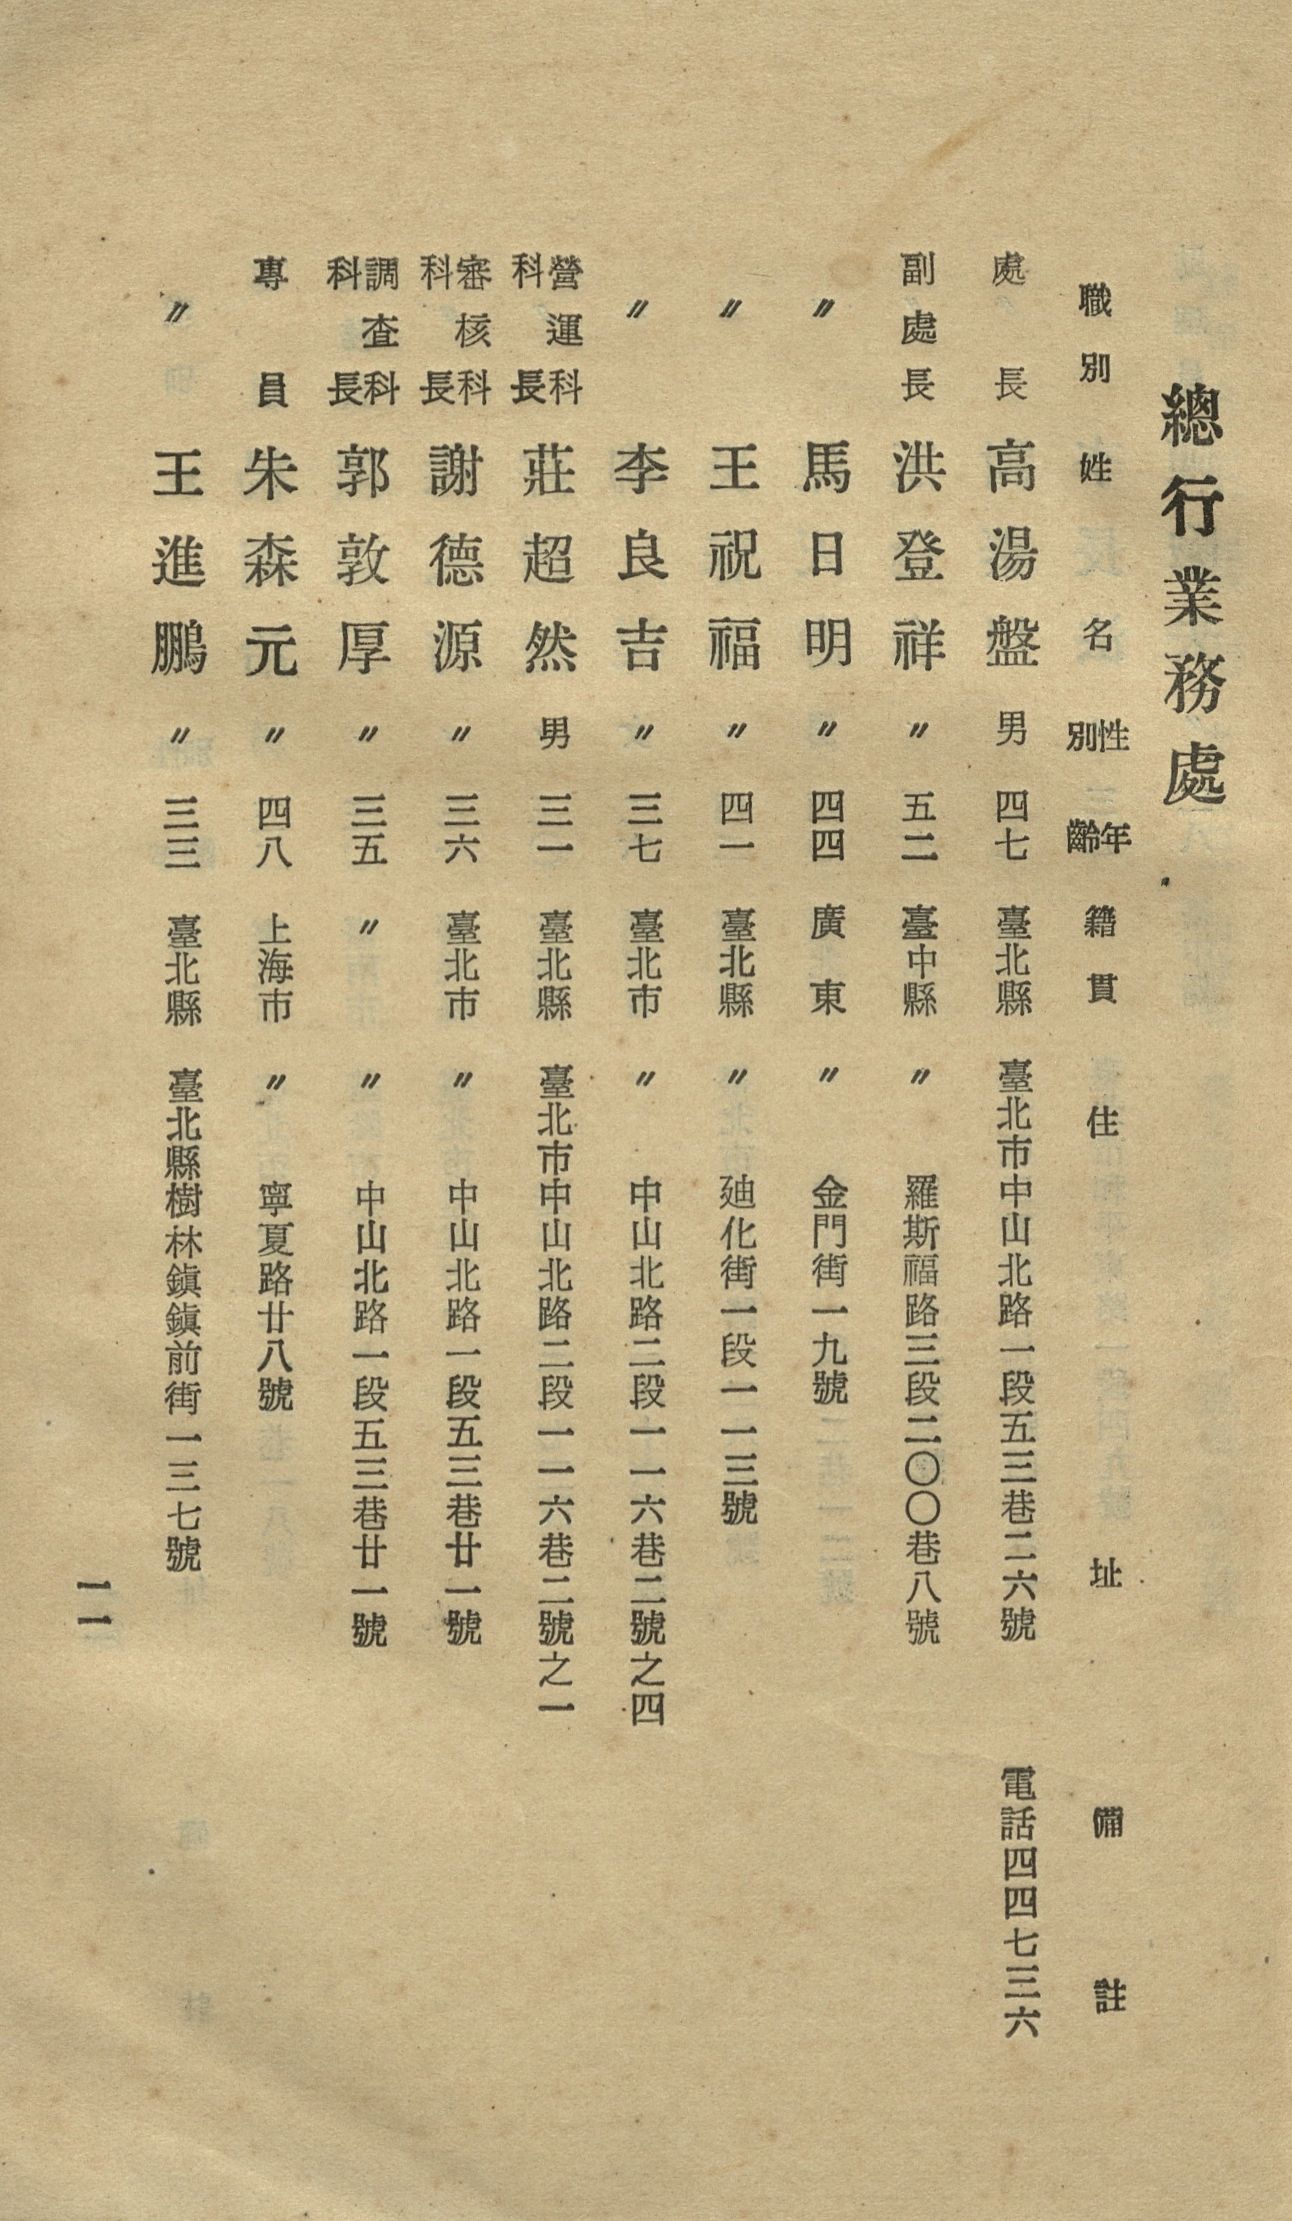 總行業務處
職別 姓名 性別 年齡 籍貫 住址 備註
處長 高湯盤 男 四七 臺北縣 臺北市中山北路一段五三巷二六號 電話四四七三六
副處長 洪登祥 〃 五二 臺中縣 〃 羅斯福路三段二〇〇巷八號
〃 馬日明 〃 四四 廣東 〃 金門街一九號
〃 王祝福 〃 四一 臺北縣 〃 廸化街一段一一三號
〃 李良吉 〃 三七 臺北市 〃 中山北路二段一一六巷二號之四
營運科科長 莊超然 男 三一 臺北縣 臺北市中山北路二段一一六巷二號之一
審核科科長 謝德源 〃 三六 臺北市 〃 中山北路一段五三巷廿一號
調查科科長 郭敦厚 〃 三五 〃 〃 中山北路一段五三巷廿一號
專員 朱森元 〃 四八 上海市 〃 寧夏路廿八號
〃 王進鵬 〃 三三 臺北縣 臺北縣樹林鎮鎮前街一三七號
一一